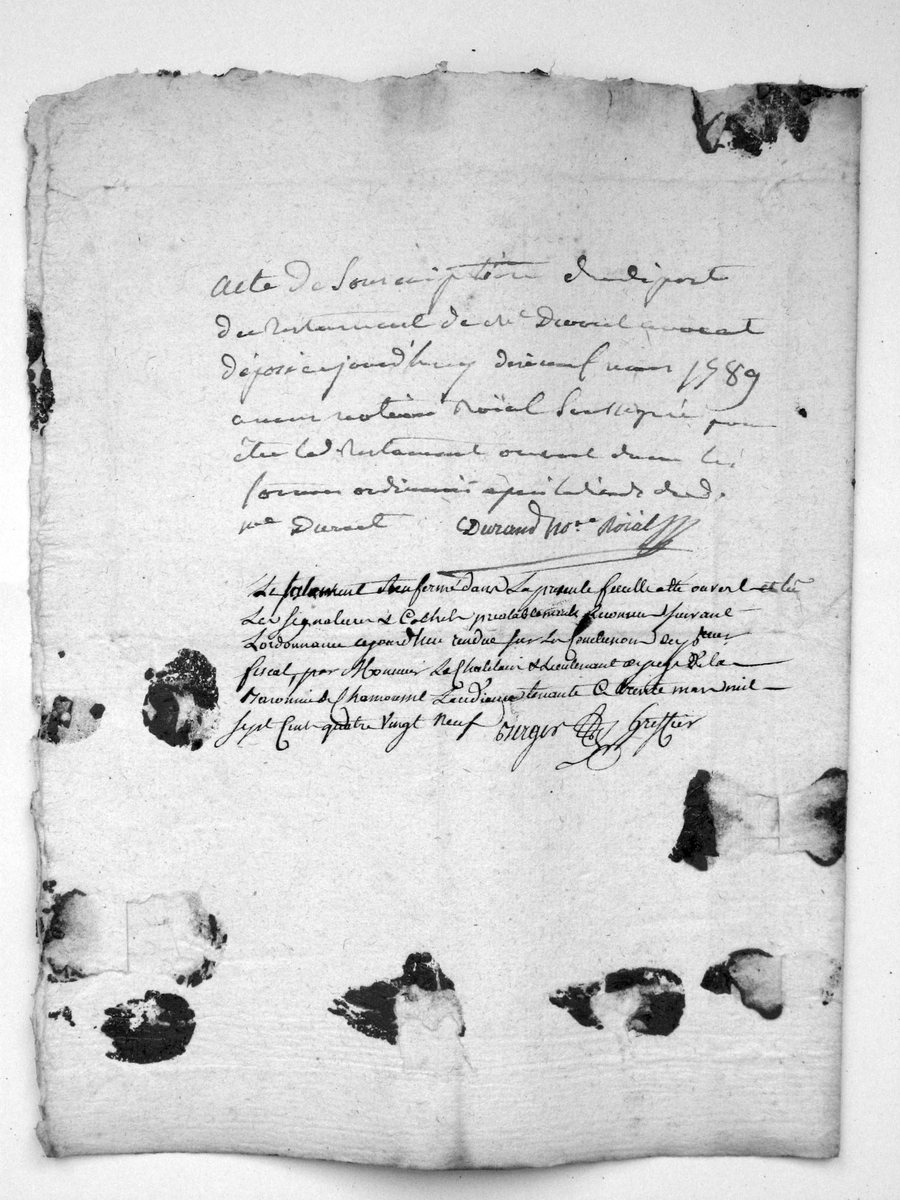 acte De Souscription du deport
du testament de Me Duvout avocat
déposé cejourd'huy dixneuf mars 1789
a nous notaire Roïal Soussigné pour
être led. testament ouvert dans les
formes ordinaires après le décès dud.
me Durand Nore. Roïal
Le testament Renfermé dans La presente feuille atté ouvert et lu
Les Signatures & Cachets prealablement Reconnus Suivant
L'ordonnance cejourd'hui rendue Sur Les Conclusions du
fiscal par Monsieur Le Chatelain & Lieutenant de juge de la
Baronnie de Chamousset Laudiance tenante Ce trente mars mil
Sept Cent quatre Vingt Neuf Berger Greffier